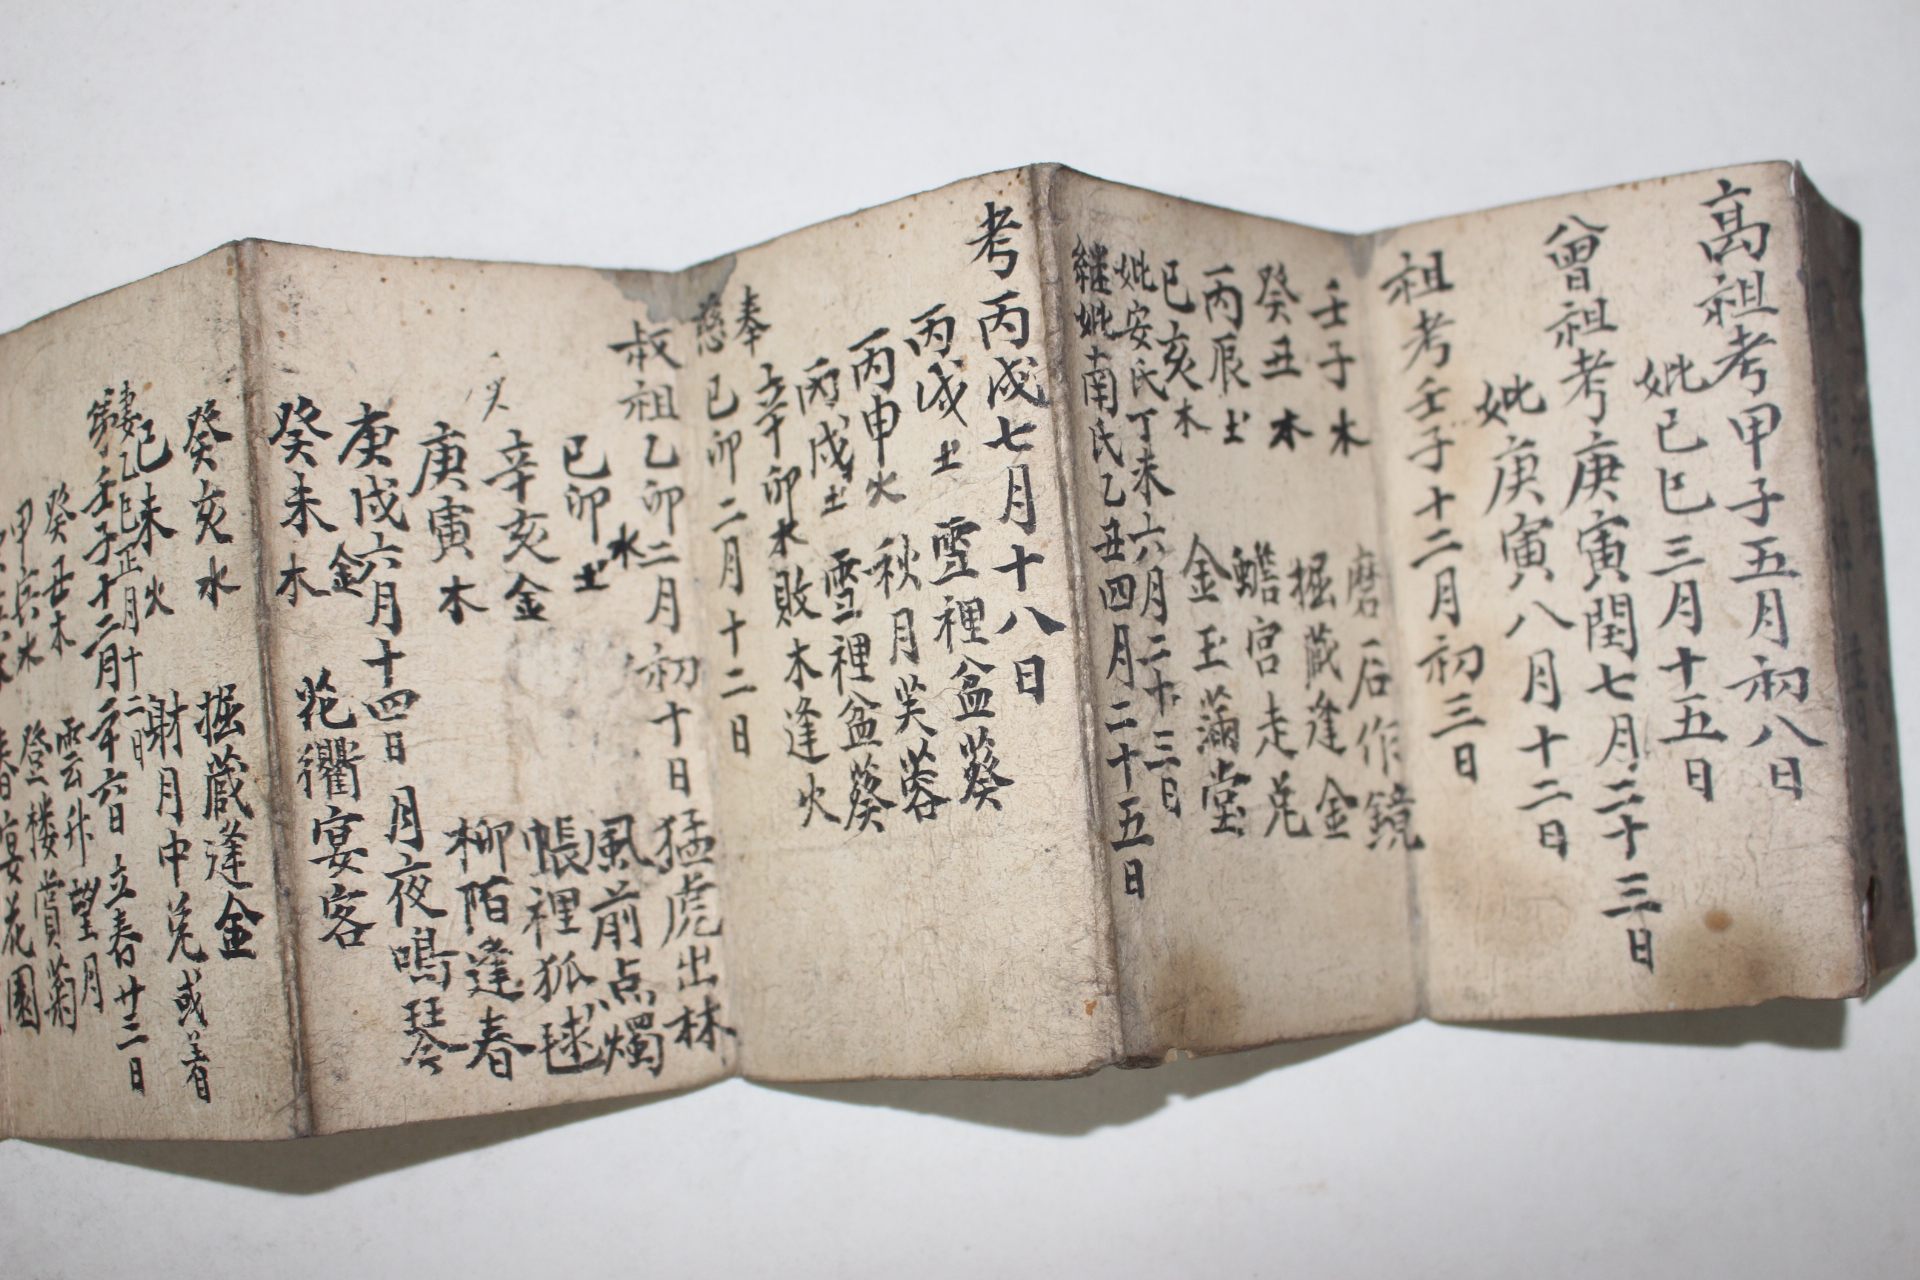 高祖考甲子五月初八日
妣己巳三月十五日
曾祖考庚寅閏七月二十三日
妣庚寅八月十二日
祖考壬子十二月初三日
壬子木 磨石作鏡
癸丑木 掘藏逢金
丙辰土 蟾宮走兎
己亥木 金玉滿堂
妣安氏丁未六月二十三日
継妣南氏乙丑四月二十五日
考丙戌七月十八日
丙戌土 雪裡盆葵
丙申火 秋月芙蓉
丙戌土 雪裡盆葵
辛卯木 敗木逢火
奉
慈己卯二月十二日
叔祖乙卯水二月初十日 猛虎出林
己卯土 風前点燭
辛亥金 帳裡狐毬
庚寅木 柳陌逢春
庚戌金六月十四日 月夜鳴琴
癸未木 花衢宴客
癸亥水 掘藏逢金
己未火 射月中兎或着
妻乙巳正月十二日
弟壬子十二月二十六日 立春廿三日
癸丑木 雲外望月
登楼賞菊
春宴花園